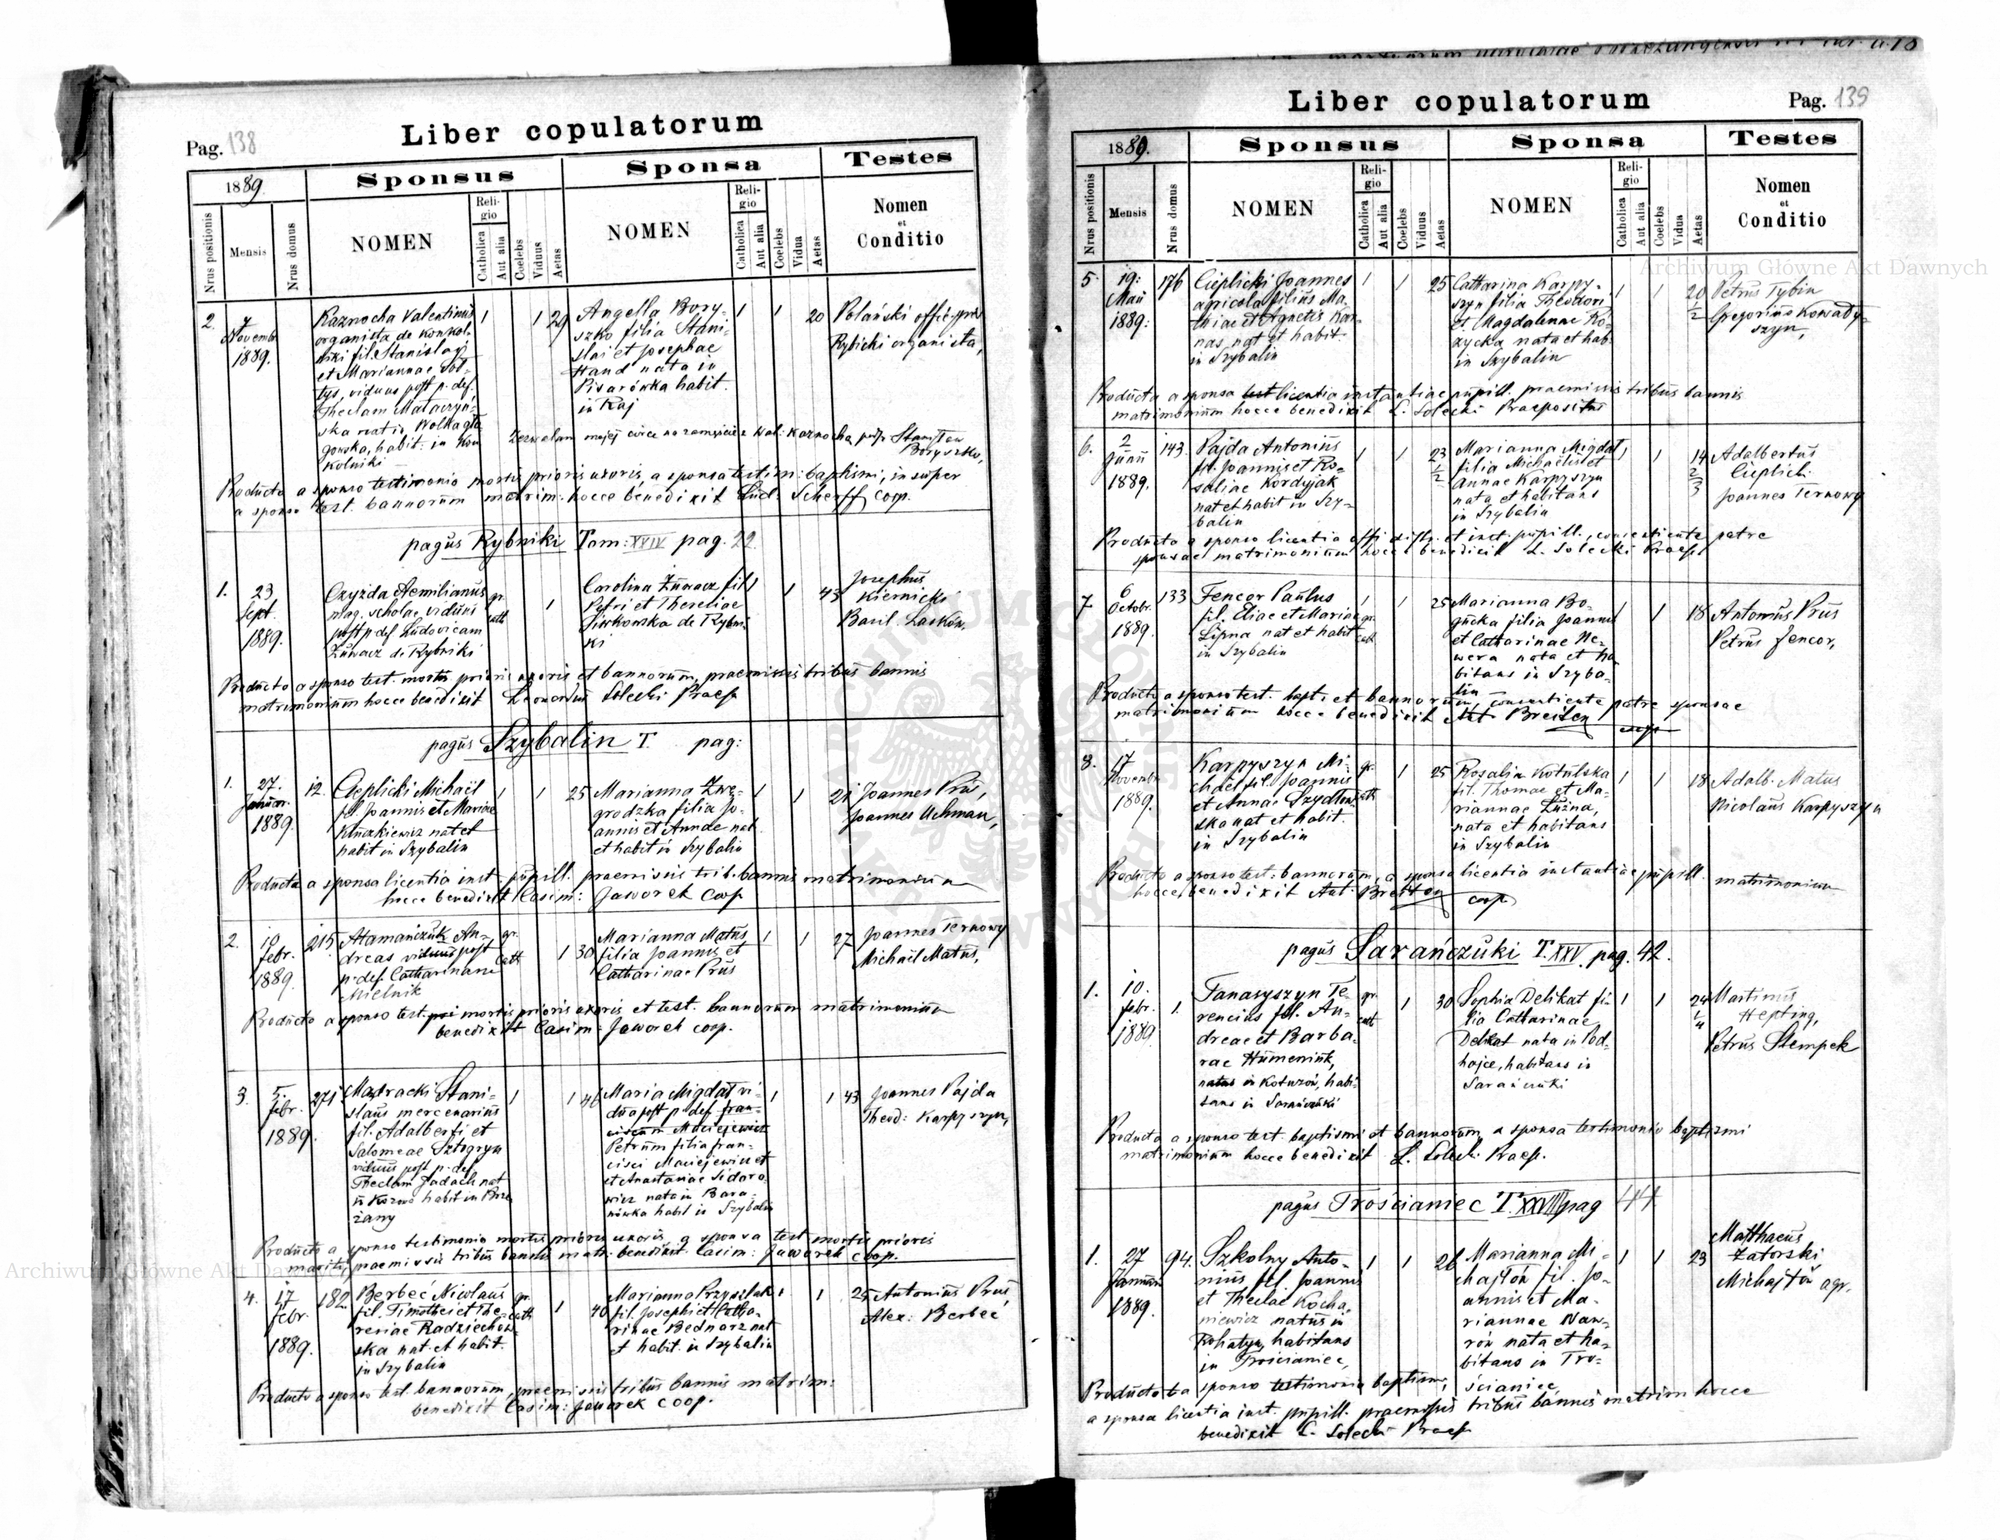 Liber copulatorum
Pag. 138
1889. Sponsus Sponsa Testes
Nrus positionis Mensis Nrus domus NOMEN Religio Catholica Aut alia Coelebs Viduus Aetas NOMEN Religio Catholica Aut alia Coelebs Vidua Aetas Nomen et Conditio
2. 7 Novembr 1889.
Kaznocha Valentinus
organista de Konkol-
niki fil. Stanislai
et Mariannae Soł-
tys, viduus post p. def.
Theclam Mataczyń-
ska natis Wolka
habit: in Kon
kolniki
1 1 29
Angella Bory-
szko filia Stani-
slai et Josephae
Hand nata in
Pisarówka habit.
in Raj
1 1 20
Polański offic. priv
Rybicki organista,
Zezwalam mojej córce na zamęście z Wal: Kaznochą podp. Stanisław
Boryszko,
Producto a sponso testimonio mortis prioris uxoris, a sponsa testim: baptismi, in super
a sponso test. bannorum matrim: hocce benedixit Lud. Scherff coop.
pagus Rybniki Tom: XXIV pag. 22
1. 23 Sept. 1889.
Czyżda Aemilianus
mag. scholae viduus
post p. def. Ludovicam
Żuwacz de Rybniki
gr. cath
1
Carolina Żuwacz fil
Petri et Thereliae
de Rybni
ki
1 1 43
Josephus
Kiernicki
Basil. Laskow.
Producto a sponso test. mortis prioris uxoris et bannorum, praemissis tribus bannis
matrimonium hocce benedixit Leonardus Solecki Praep
pagus Szybalin T. pag:
1. 27. Januar. 1889. 12.
Cieplicki Michaël
fil. Joannis et Mariae
Kluczkiewicz nat et
habit in Szybalin
1 1 25
Marianna Zwe-
grodzka filia Jo-
annis et Annae nat
et habit in Szybalin
1 1 21
Joannes Prus,
Joannes Uchman,
Producta a sponsa licentia inst. pupill. praemissis trib. bannis matrimonium
hocce benedixit Casim: Jaworek coop
2. 10 febr. 1889. 215.
Atamańczuk An-
dreas viduus post
p. def. Catharinam
Mielnik
gr. cath
1 30
Marianna Matus
filia Joannis et
Catharinae Prus
1 1 27
Joannes Ternowy
Michaël Matus,
Producto a sponso test. mortis prioris uxoris et test. bannorum matrimonium
benedixit Casim: Jaworek coop.
3. 5. febr. 1889. 271
Mazracki Stani-
slaus mercenarius
fil. Adalberti et
Salomeae Sztogryn
viduus post p. def
Theclam Gadach nat
in Kozowa habit in Brze
żany
1 1 46
Maria Migdał vi-
dua post p. def. fran-
ciscum Maciejewicz
Petrum filia fran-
cisci Maciejewicz et
et Anastasiae Sidoro
wicz nata in Bara-
nówka habit in Szybalin
1 1 43
Joannes Pajda
Theod: Karpyszyn,
Producto a sponso testimonio mortis prioris uxoris, a sponsa test mortis prioris
mariti, praemissis tribus bannis matr: benedixit Casim: Jaworek coop.
4. 17 febr. 1889. 182
Berbeć Nicolaus
fil. Timothei et The-
resiae Radziechow-
ska nat. et habit.
in Szybalin
gr. cath
1 40
Marianna Przyszlak
fil. Josephi et Catha-
rinae Bednarz nat
et habit. in Szybalin
1 1 25
Antonius Prus,
Alex: Berbeć
Producto a sponso test. bannorum, praemissis tribus bannis matrim:
benedixit Casim: Jaworek coop.
Liber copulatorum
Pag. 139
1889. Sponsus Sponsa Testes
Nrus positionis Mensis Nrus domus NOMEN Religio Catholica Aut alia Coelebs Viduus Aetas NOMEN Religio Catholica Aut alia Coelebs Vidua Aetas Nomen et Conditio
5. 19: Maii 1889. 176
Cieplicki Joannes
agricola filius Ma-
thiae et Agnetis Kar-
nas, nat et habit.
in Szybalin
1 1 25
Catharina Karpy-
szyn filia Theodori
et Magdalenae Ko-
zycka nata et hab.
in Szybalin
1 1 20 1/2
Petrus Tybin
Gregorius Kowady-
szyn,
Producta a sponsa licentia instantiae pupill. praemissis tribus bannis
matrimonium hocce benedixit L. Solecki Praepositus
6. 2 Junii 1889. 143.
Pajda Antonius
fil. Joannis et Ro-
saliae Kordyjak
nat et habit in Szy-
balin
1 1 23 1/2
Marianna Migdał
filia Michaëlis et
Annae Karpyszyn
nata et habitans
in Szybalin
1 1 14 2/3
Adalbertus
Cieplicki
Joannes Ternowy
Producta a sponso licentia offi. distr. et inst. pupill., consentiente patre
sponsae matrimonium hocce benedixit L. Solecki Praep
7. 6 Octobr. 1889. 133
Fencor Paulus
fil. Eliae et Mariae
Lipna nat et habit
in Szybalin
gr. cath
1 1 25
Marianna Bo-
gucka filia Joannis
et Catharinae Ne-
wera nata et ha-
bitans in Szyba-
lin
1 1 18
Antonius Prus
Petrus Fencor,
Producto a sponso test. bapt. et bannorum, consentiente patre sponsae
matrimonium hocce benedixit Ant. Breiten
coop
8. 17 Novembr. 1889.
Karpyszyn Mi-
chael fil. Joannis
et Annae Szydłow-
ska nat et habit.
in Szybalin
gr. cath
1 25
Rosalia Kotulska
fil. Thomae et Ma-
riannae Luźna,
nata et habitans
in Szybalin
1 1 18
Adalb. Matus
Nicolaus Karpyszyn
Producto a sponso test: bannorum, a sponsa licentia instantiae pupill. matrimonium
hocce benedixit Ant. Breiten coop
pagus Sarańczuki T. XXV pag. 42.
1. 10. febr. 1889. 1.
Tanasyszyn Te-
rencius fil. An-
dreae et Barba-
rae Humeniuk,
natus in Kotuzów, habi-
tans in Sarańczuki
gr. cath.
1 30
Sophia Delikat fi-
lia Catharinae
Delikat nata in Pod-
hajce, habitans in
Sarańczuki
1 1 24 1/4
Martinus
Hepting,
Petrus Slempek
Producto a sponso test. baptismi et bannorum, a sponsa testimonio baptismi
matrimonium hocce benedixit L. Solecki Praep.
pagus Trościaniec T. XXVIII pag 44
1. 27 Januarii 1889. 94.
Szkolny Anto-
nius fil. Joannis
et Theclae Kocha-
niewicz natus in
Rohatyn, habitans
in Trościaniec,
1 1 26
Marianna Mi-
chajłów fil. Jo-
annis et Ma-
riannae Naw-
rón nata et ha-
bitans in Tro-
ścianiec
1 1 23
Matthaeus
Zatorski,
Michajłów agr.
Producto a sponso testimonio baptismi,
a sponsa licentia inst. pupill. praemissis tribus bannis matrim hocce
benedixit L. Solecki Praep
Archiwum Główne Akt Dawnych
Archiwum Główne Akt Dawnych